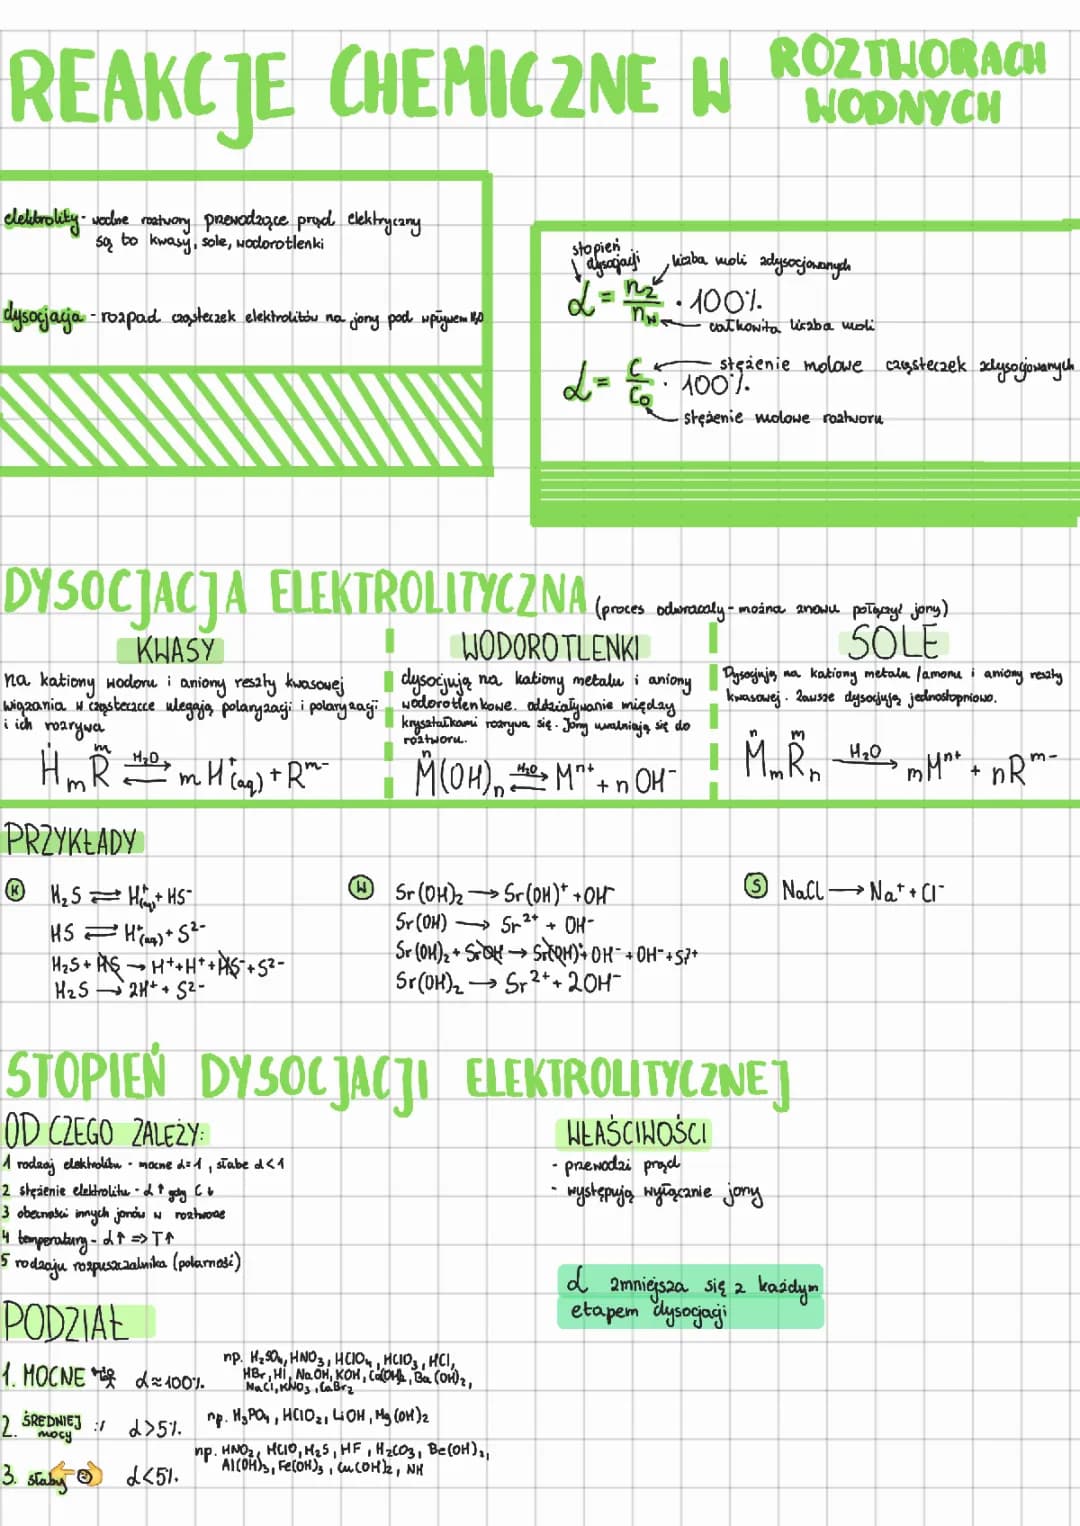 REAKCJE CHEMICZNE W ROZTWORACH WODNYCH
elektrolity - wodne roztwory przewodzące prąd elektryczny
są to kwasy, sole, wodorotlenki
dysocjacja - rozpad cząsteczek elektrolitów na jony pod wpływem H₂O
stopień dysocjacji
liczba moli zdysocjowanych
α = n_z / n_w · 100%
całkowita liczba moli
α = C / C₀ · 100%
stężenie molowe cząsteczek zdysocjowanych
stężenie molowe roztworu
DYSOCJACJA ELEKTROLITYCZNA (proces odwracalny - można znowu połączyć jony)
KWASY
na kationy wodoru i aniony reszty kwasowej
wiązania w cząsteczce ulegają polaryzacji i polaryzacji
i ich rozrywa
HₘR ⇄ (H₂O) m H⁺(aq) + Rᵐ⁻
WODOROTLENKI
dysocjują na kationy metalu i aniony
wodorotlenkowe. oddziaływanie między
kryształkami rozrywa się. Jony uwalniają się do
roztworu.
M(OH)ₙ ⇄ (H₂O) Mⁿ⁺ + n OH⁻
SOLE
Dysocjują na kationy metalu /amonu i aniony reszty
kwasowej. Zawsze dysocjują jednostopniowo.
MₘRₙ → (H₂O) mMⁿ⁺ + nRᵐ⁻
PRZYKŁADY
K
H₂S ⇄ H⁺(aq) + HS⁻
HS ⇄ H⁺(aq) + S²⁻
H₂S + HS → H⁺ + H⁺ + HS⁻ + S²⁻
H₂S → 2H⁺ + S²⁻
W
Sr(OH)₂ → Sr(OH)⁺ + OH⁻
Sr(OH) → Sr²⁺ + OH⁻
Sr(OH)₂ + SrOH → Sr(OH)⁺ + OH⁻ + OH⁻ + S²⁺
Sr(OH)₂ → Sr²⁺ + 2OH⁻
S
NaCl → Na⁺ + Cl⁻
STOPIEŃ DYSOCJACJI ELEKTROLITYCZNEJ
OD CZEGO ZALEŻY:
1 rodzaj elektrolitu - mocne α=1, słabe α<1
2 stężenie elektrolitu - α↑ gdy C↓
3 obecności innych jonów w roztworze
4 temperatury - α↑ => T↑
5 rodzaju rozpuszczalnika (polarność)
WŁAŚCIWOŚCI
- przewodzi prąd
- występują wyłącznie jony
α zmniejsza się z każdym
etapem dysocjacji
PODZIAŁ
1. MOCNE α≈100%
np. H₂SO₄, HNO₃, HClO₄, HClO₃, HCl,
HBr, HI, NaOH, KOH, Ca(OH)₂, Ba(OH)₂,
NaCl, KNO₃, CaBr₂
2. ŚREDNIEJ mocy :/ α>5%
np. H₃PO₄, HClO₂, LiOH, Mg(OH)₂
3. słaby α<5%
np. HNO₂, HClO, H₂S, HF, H₂CO₃, Be(OH)₂,
Al(OH)₃, Fe(OH)₃, Cu(OH)₂, NH